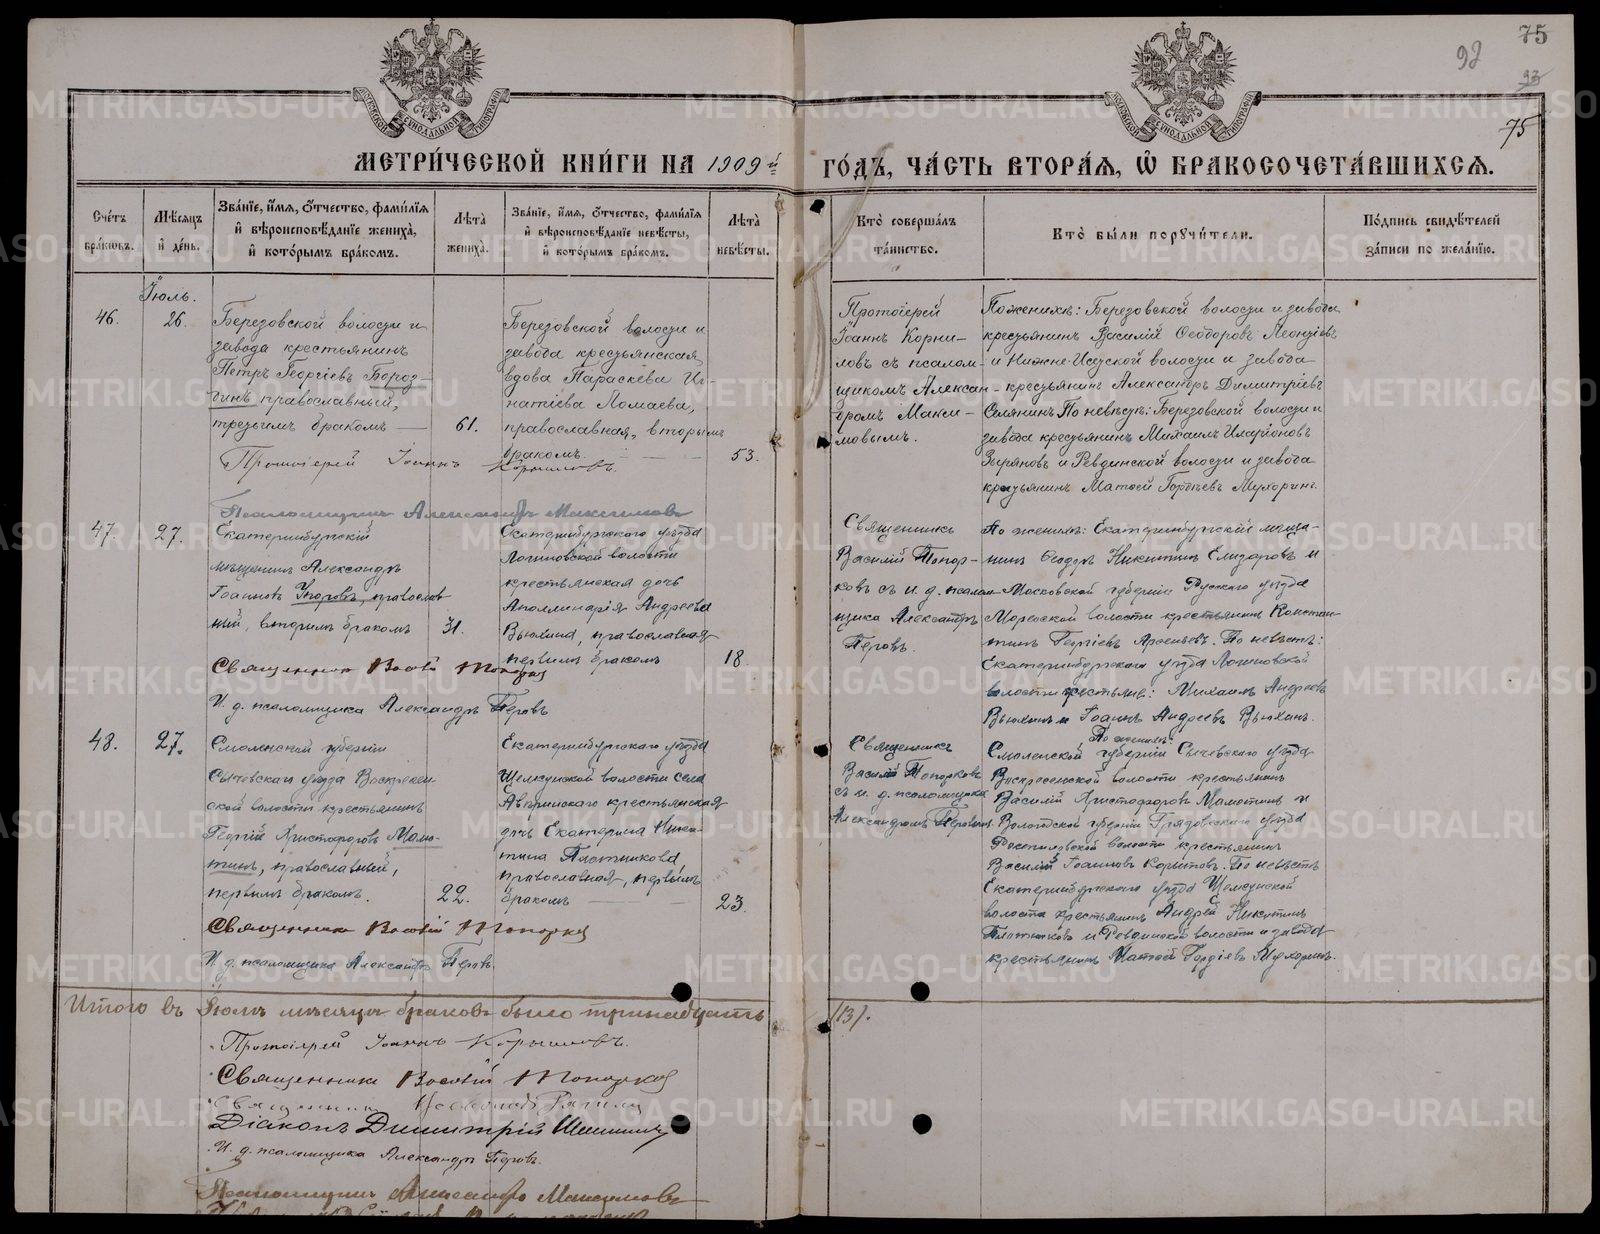 75
92
93
75
МЕТРИ́ЧЕСКОЙ КНИ́ГИ НА 1909й ГО́ДЪ, ЧА́СТЬ ВТОРА́Я, Ѽ БРАКОСОЧЕТА́ВШИХСЯ.
Счётъ бра́ковъ.
Мѣсяцъ и де́нь.
Зва́нїе, и́мя, о́тчество, фами́лїя и вѣроисповѣ́данїе жениха̀, и кото́рымъ бра́комъ.
Лѣта̀ жениха̀.
Зва́нїе, и́мя, о́тчество, фами́лїя и вѣроисповѣ́данїе невѣ́сты, и кото́рымъ бра́комъ.
Лѣта̀ невѣ́сты.
Кто̀ соверша́лъ та́инство.
Кто̀ бы́ли порꙋчи́тели.
По́дпись свидѣ́телей за́писи по жела́нїю.
Іюль.
46.
26.
Березовской волости и
завода крестьянинъ
Петръ Георгіевъ Бороз-
гинъ православный,
третьимъ бракомъ
61.
Березовской волости и
завода крестьянская
вдова Параскева Иг-
натіева Ломаева,
православная, вторымъ
бракомъ.
53.
Протоіерей
Іоаннъ Корни-
ловъ съ псалом-
щикомъ Алексан-
дромъ Макси-
мовымъ.
По женихѣ: Березовской волости и завода
крестьянинъ Василій Ѳеодоровъ Леонтіевъ
и Нижне-Исетской волости и завода
крестьянинъ Александръ Димитріевъ
Селянинъ По невѣстѣ: Березовской волости и
завода крестьянинъ Михаилъ Иларіоновъ
Зыряновъ и Ревдинской волости и завода
крестьянинъ Матѳей Гордѣевъ Мухоринъ.
Протоіерей Іоаннъ Корниловъ.
Псаломщикъ Александръ Максимовъ
47.
27.
Екатеринбургскій
мѣщанинъ Александръ
Іоанновъ Угоровъ, православ
ный, вторымъ бракомъ
31.
Екатеринбургского уѣзда
Логиновской волости
крестьянская дочь
Аполлинарія Андреева
Вьюхина, православная
первымъ бракомъ
18.
Священникъ
Василій Топор-
ковъ съ и. д. псалом
щика Александръ
Перовъ.
По женихѣ: Екатеринбургскій мѣща-
нинъ Ѳеодоръ Никитинъ Елизаровъ и
Московской губерніи Рузского уѣзда
волости крестьянинъ Констан-
тинъ Георгіевъ Арсеньевъ. По невѣстѣ:
Екатеринбургского уѣзда Логиновской
волости крестьяне: Михаилъ Андреевъ
Вьюхинъ и Іоаннъ Андреевъ Вьюхинъ.
Священникъ Василій Топорков
И. д. псаломщика Александръ Перовъ
48.
27.
Смоленской губерніи
Сычевскаго уѣзда Воскресен
ской волости крестьянинъ
Георгій Христофоровъ Мамо-
тинъ, православный,
первымъ бракомъ.
22.
Екатеринбургского уѣзда
волости села
Авѣринскаго крестьянская
дочь Екатерина Ники-
тина Плотникова,
православная, первымъ
бракомъ
23.
Священникъ
Василій Топорковъ
съ и. д. псаломщика
Александромъ Перовымъ.
По женихѣ:
Смоленской губерніи Сычевского уѣзда
Воскресенской волости крестьянинъ
Василій Христофоровъ Мамотинъ и
Вологодской губерніи Грядовского уѣзда
волости крестьянинъ
Василій Іоанновъ Корытовъ. По невѣстѣ
Екатеринбургского уѣзда
волости крестьянинъ Андрей Никитинъ
Плотниковъ и Ревдинской волости и завода
крестьянинъ Матѳей Гордіевъ Мухоринъ.
Священникъ Василій Топорков
И. д. псаломщика Александръ Перовъ.
Итого въ Іюлѣ мѣсяцѣ браковъ было тринадцать (13).
Протоіерей Іоаннъ Корниловъ.
Священникъ Василій Топорков
Священникъ
Діаконъ Димитрій
И. д. псаломщика Александръ Перовъ.
Псаломщикъ Александръ Максимовъ
METRIKI.GASO-URAL.RU